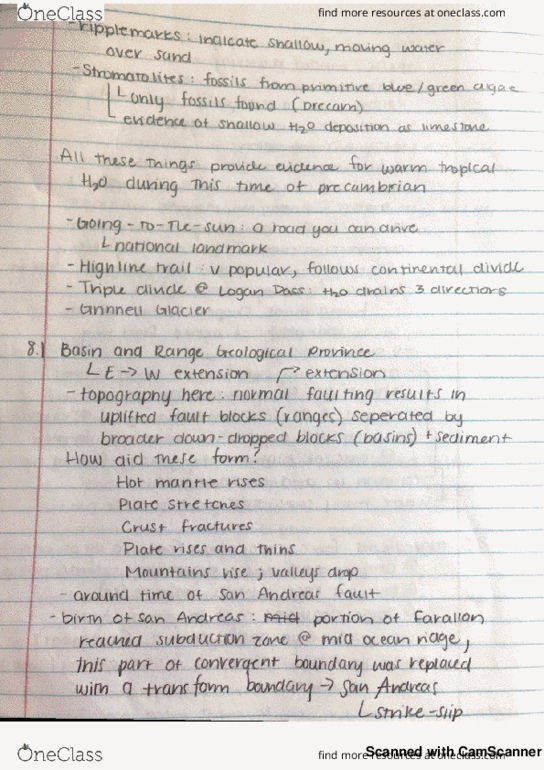 OneClass
find more resources at oneclass.com
- ripplemarks : indicate shallow, moving water
over sand
- Stromatolites : fossils from primitive blue/green algae
└ only fossils found (precam)
└ evidence of shallow H₂O deposition as limestone
All these things provide evidence for warm tropical
H₂O during this time of precambrian
- Going-To-The-Sun : a road you can drive
└ national landmark
- Highline trail : v popular, follows continental divide
- Triple divide @ Logan Pass : H₂O drains 3 directions
- Grinnell Glacier
8.1 Basin and Range Geological Province
└ E → W extension ┌→ extension
- topography here : normal faulting results in
uplifted fault blocks (ranges) seperated by
broader down-dropped blocks (basins) + sediment
How did these form?
Hot mantle rises
Plate stretches
Crust fractures
Plate rises and thins
Mountains rise ; valleys drop
- around time of San Andreas fault
- birth of San Andreas : mid portion of farallon
reached subduction zone @ mid ocean ridge,
this part of convergent boundary was replaced
with a transform boundary → San Andreas
└ strike-slip
OneClass
find more resources at oneclass.com
Scanned with CamScanner